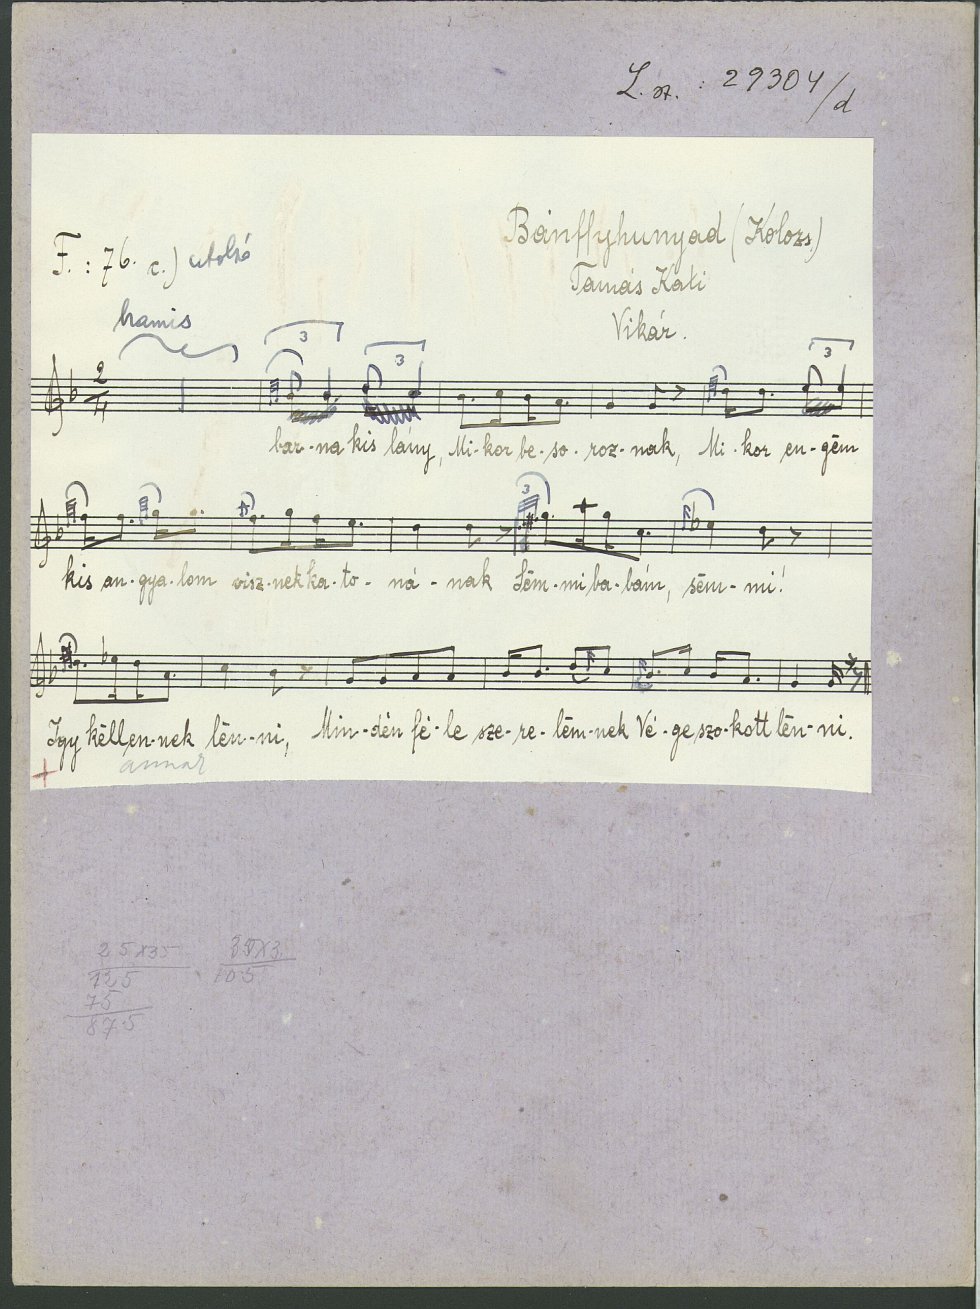 L. sz. : 29304/d
Bánffyhunyad (Kolozs)
F. : 76. c.) utolsó
Tamás Kati
hamis
Vikár.
3 3 3
2/4
bar--na kis lány, Mi-kor be-so-roz-nak, Mi-kor en-gëm
3
kis an-gya-lom visz-nek ka-to-ná-nak Sëm-mi ba-bám, sëm-mi!
Igy këllen-nek lën-ni, Min-dén fé-le sze-re-lëm-nek Vé-ge szo-kott lën-ni.
+ annak
25x35 35x3
125 105
75
875